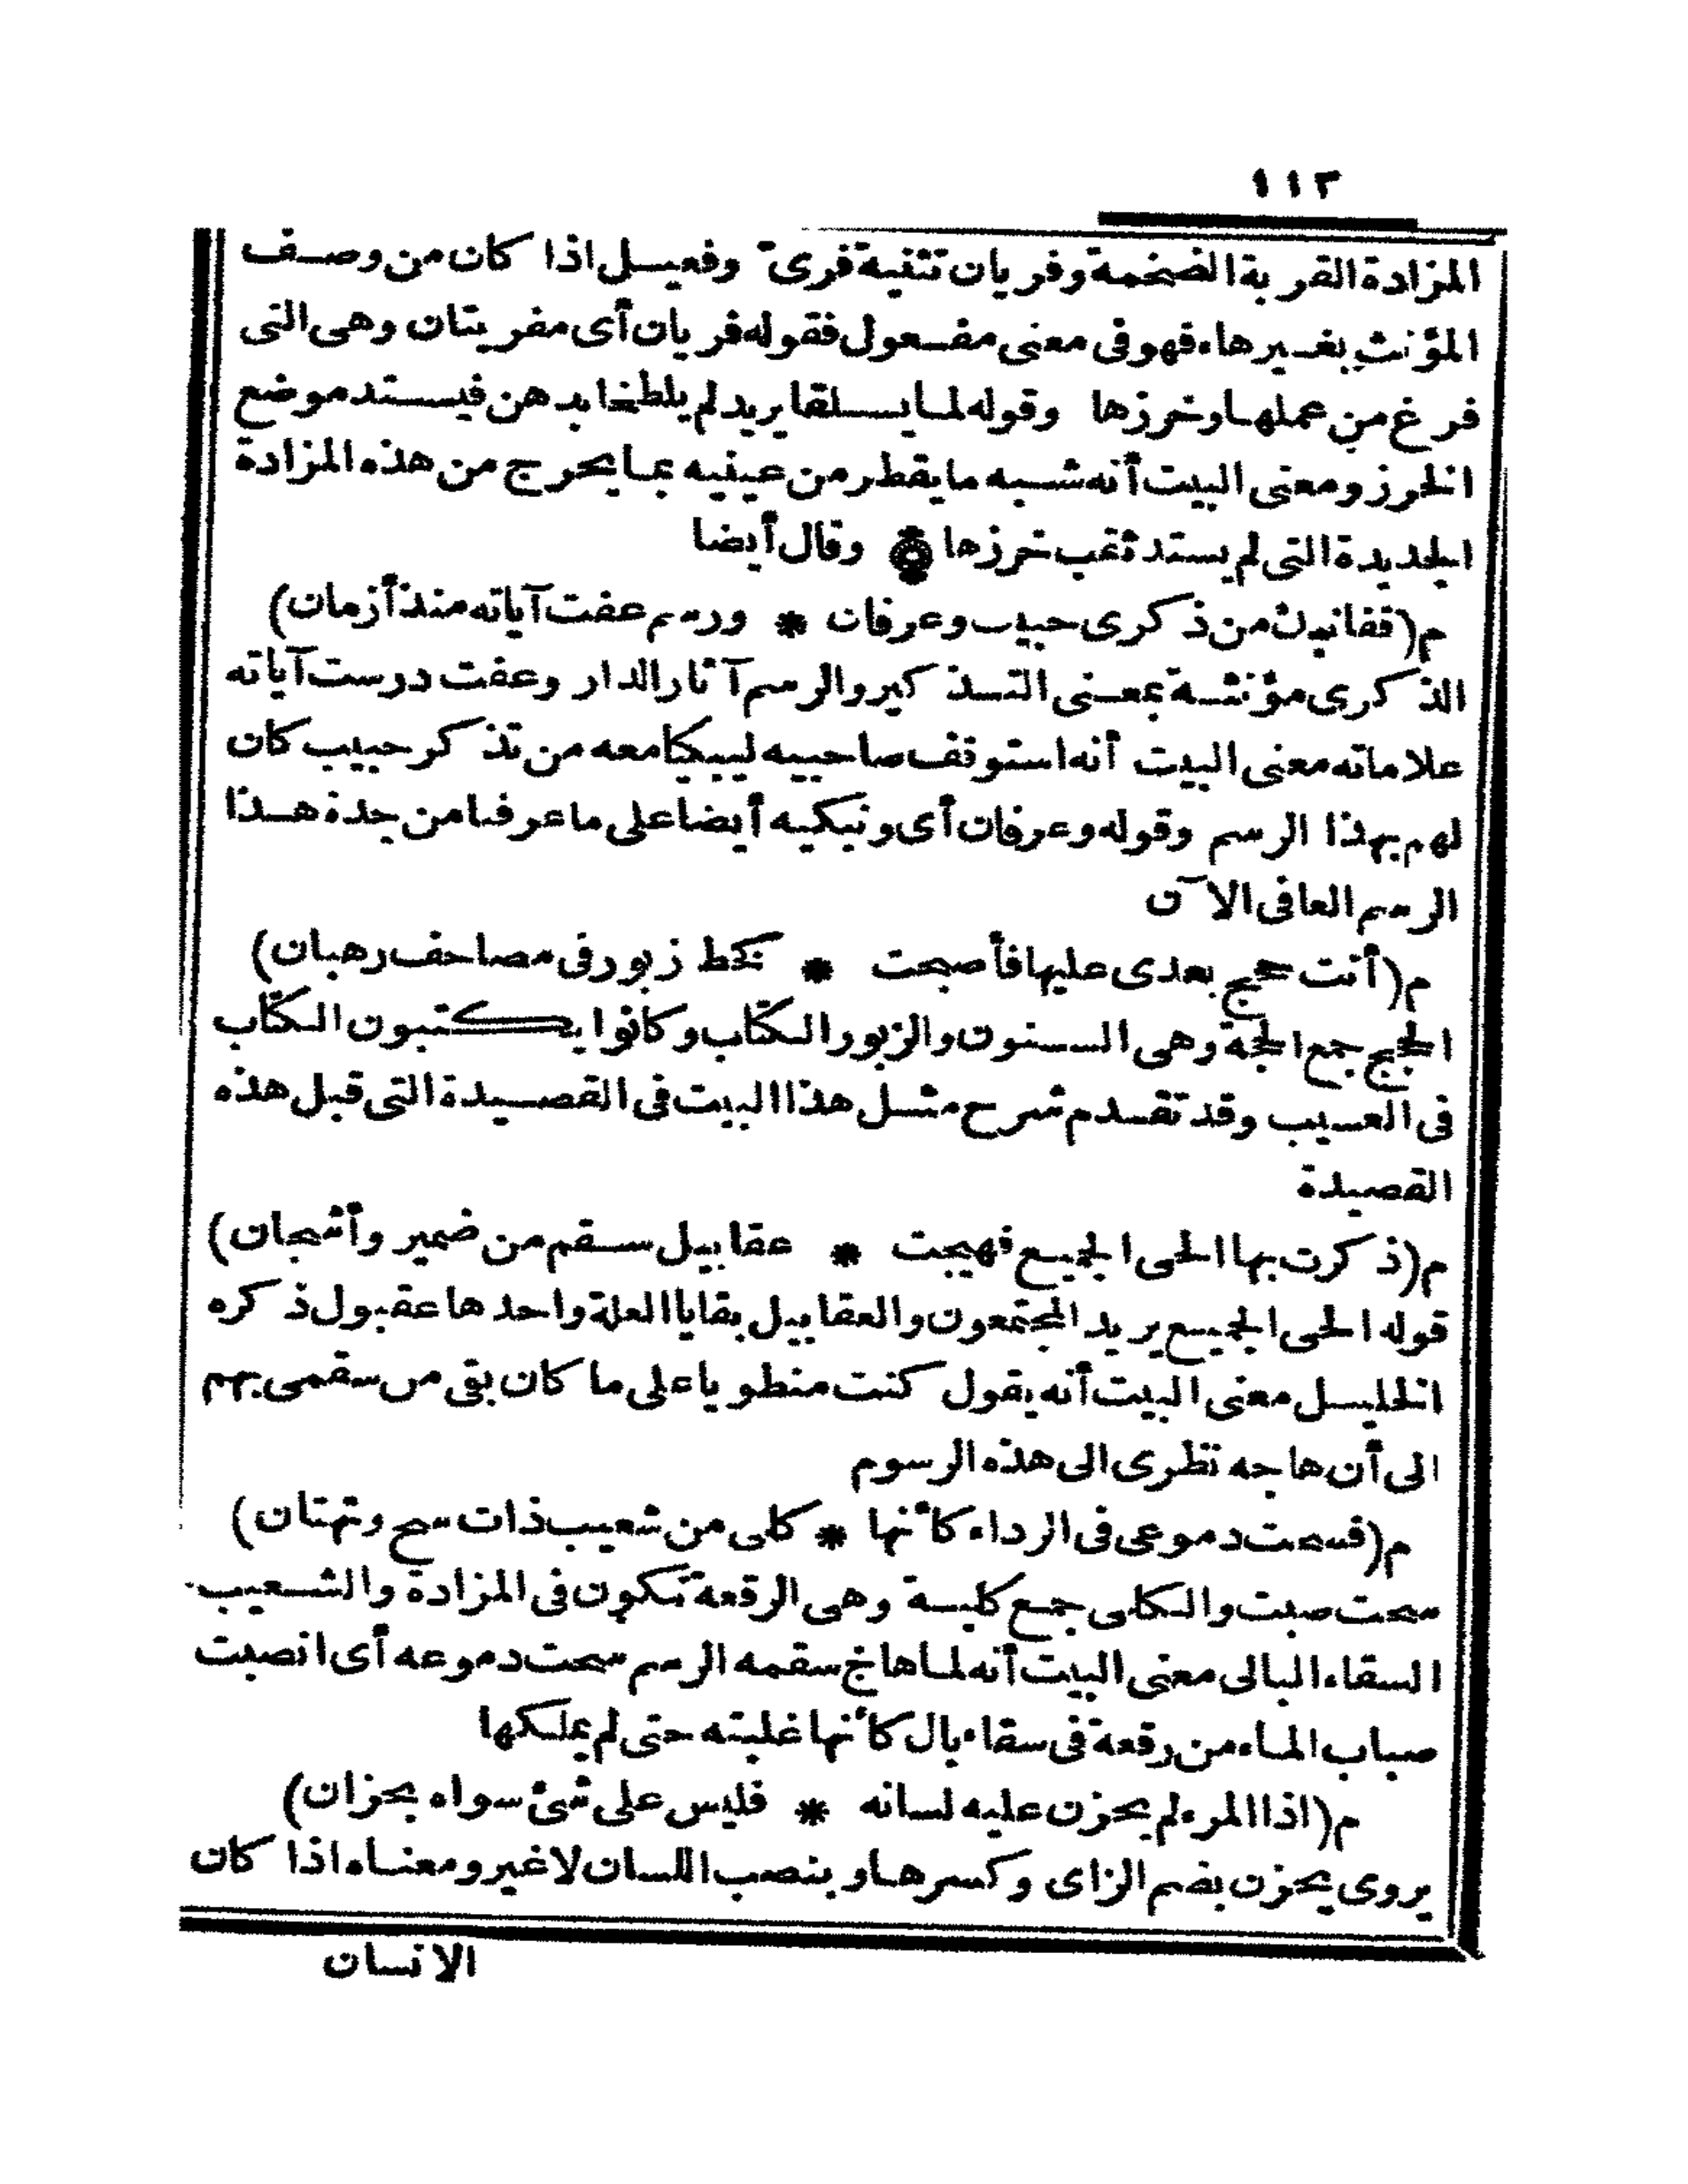 ١١٣
المزادة القربة الضخمة وفريان تثنية فرىّ وفعيل اذا كان من وصف
المؤنث بغير هاء فهو فى معنى مفعول فقوله فريان أى مفريتان وهى التى
فرغ من عملها وخرزها وقوله لما يسلقا يريد لم يلطخا بدهن فيستد موضع
الخرز ومعنى البيت أنه شبه ما يقطر من عينيه بما يخرج من هذه المزادة
الجديدة التى لم يستد ثقب خرزها وقال أيضا
م (قفا نبك من ذكرى حبيب وعرفان * ورسم عفت آياته منذ أزمان)
الذكرى مؤنثة بمعنى التذكير والرسم آثار الدار وعفت درست آياته
علاماته معنى البيت أنه استوقف صاحبيه ليبكيا معه من تذكر حبيب كان
لهم بهذا الرسم وقوله وعرفان أى ونبكيه أيضا على ما عرفنا من جدة هذا
الرسم العافى الآن
م (أتت حجج بعدى عليها فأصبحت * كخط زبور فى مصاحف رهبان)
الحجج جمع الحجة وهى السنون والزبور الكتاب وكانوا يكتبون الكتاب
فى العسيب وقد تقدم شرح مثل هذا البيت فى القصيدة التى قبل هذه
القصيدة
م (ذكرت بها الحى الجميع فهيجت * عقابيل سقم من ضمير وأشجان)
قوله الحى الجميع يريد المجتمعون والعقابيل بقايا العلة واحدها عقبول ذكره
الخليل معنى البيت أنه يقول كنت منطويا على ما كان بقى من سقمى بهم
الى أن هاجه نظرى الى هذه الرسوم
م (فسحت دموعى فى الرداء كأنها * كلى من شعيب ذات سح وتهتان)
سحت صبت والكلى جمع كلية وهى الرقعة تكون فى المزادة والشعيب
السقاء البالى معنى البيت أنه لما هاج سقمه الرسم سحت دموعه أى انصبت
صباب الماء من رقعة فى سقاء بال كأنها غلبته حتى لم يملكها
م (اذا المرء لم يخزن عليه لسانه * فليس على شئ سواه بخزان)
يروى يخزن بضم الزاى وكسرها وبنصب اللسان لا غير ومعناه اذا كان
الانسان